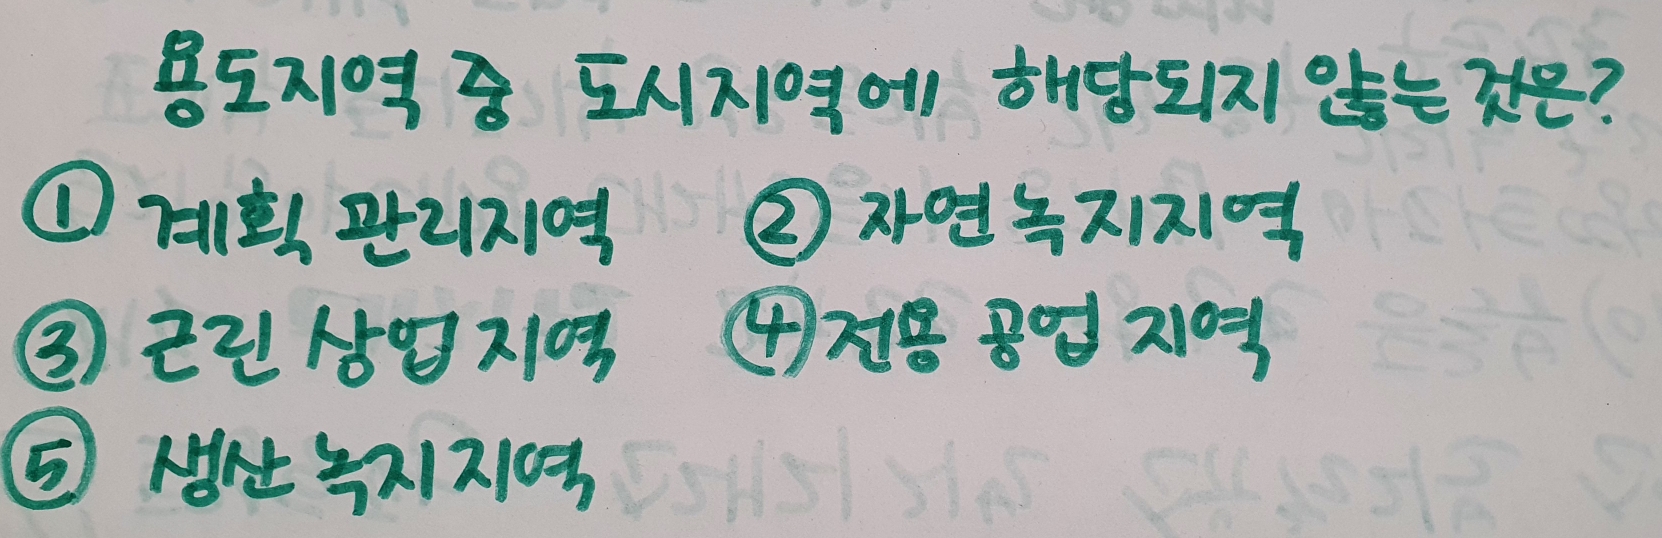 용도지역 중 도시지역에 해당되지 않는 것은?
① 계획 관리지역 ② 자연녹지지역
③ 근린 상업 지역 ④ 전용 공업 지역
⑤ 생산 녹지지역